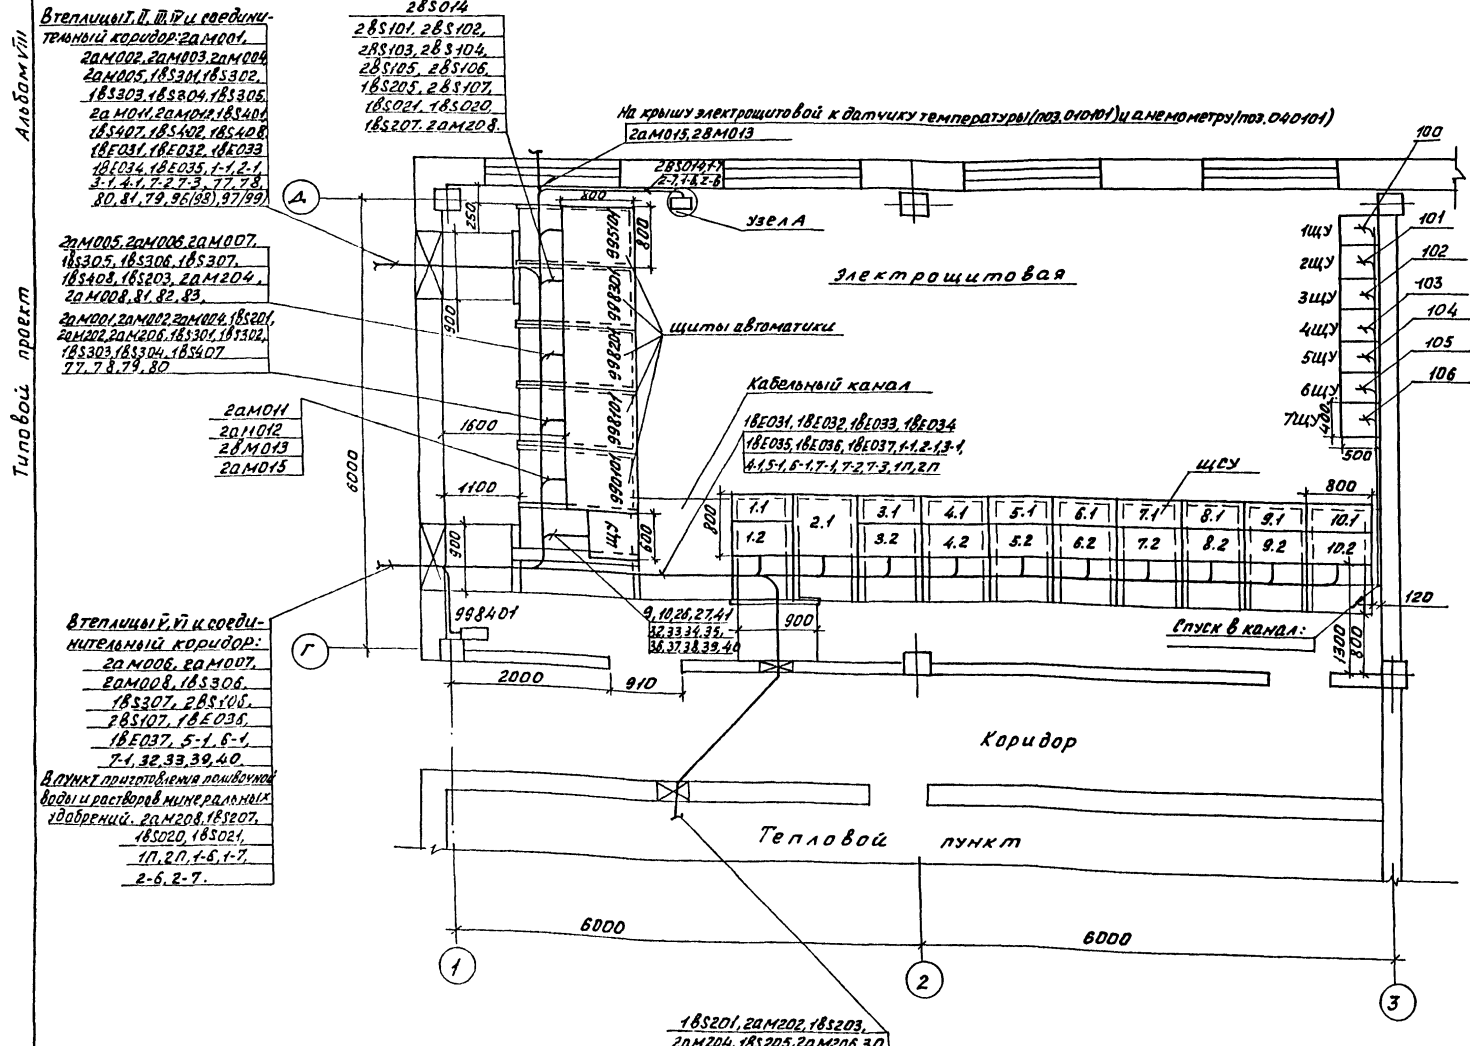 Альбом VIII
Типовой проект
В теплицы I, II, III, IV и соедини-
тельный коридор: 2аМ001,
2аМ002, 2аМ003, 2аМ004
2аМ005, 1вS301, 1вS302,
1вS303, 1вS304, 1вS305,
2аМ011, 2аМ012, 1вS401
1вS407, 1вS402, 1вS408
1вЕ031, 1вЕ032, 1вЕ033
1вЕ034, 1вЕ035, 1-1, 2-1,
3-1, 4-1, 7-2, 7-3, 77, 78,
80, 81, 79, 96(98), 97(99)
2аМ005, 2аМ006, 2аМ007,
1вS305, 1вS306, 1вS307,
1вS408, 1вS203, 2аМ204,
2аМ008, 81, 82, 83,
2аМ001, 2аМ002, 2аМ004, 1вS201,
2аМ202, 2аМ206, 1вS301, 1вS302,
1вS303, 1вS304, 1вS407
77, 78, 79, 80
2аМ011
2аМ012
2вМ013
2аМ015
В теплицы V, VI и соеди-
нительный коридор:
2аМ006, 2аМ007,
2аМ008, 1вS306,
1вS307, 2вS106,
2вS107, 1вЕ036,
1вЕ037, 5-1, 6-1,
7-1, 32, 33, 39, 40.
В пункт приготовления поливочной
воды и растворов минеральных
удобрений. 2аМ208, 1вS207,
1вS020, 1вS021,
1П, 2П, 1-6, 1-7,
2-6, 2-7.
2вS014
2вS101, 2вS102,
2вS103, 2вS104,
2вS105, 2вS106,
1вS205, 2вS107,
1вS021, 1вS020,
1вS207, 2аМ208.
На крышу электрощитовой к датчику температуры (поз. 010101) и анемометру (поз. 040101)
2аМ015, 2вМ013
2вS014, 1-7
2-7, 1-6, 2-6
Узел А
Электрощитовая
Щиты автоматики
Кабельный канал
1вЕ031, 1вЕ032, 1вЕ033, 1вЕ034
1вЕ035, 1вЕ036, 1вЕ037, 1-1, 2-1, 3-1,
4-1, 5-1, 6-1, 7-1, 7-2, 7-3, 1П, 2П
ЩСУ
100
101
102
103
104
105
106
1ЩУ
2ЩУ
3ЩУ
4ЩУ
5ЩУ
6ЩУ
7ЩУ
400
500
800
Д
Г
250
800
800
900
6000
1600
1100
900
600
800
995101
998301
998201
998101
990101
ЩУ
1.1 2.1 3.1 4.1 5.1 6.1 7.1 8.1 9.1 10.1
1.2 3.2 4.2 5.2 6.2 7.2 8.2 9.2 10.2
998401
9, 10, 26, 27, 41
32, 33, 34, 35,
36, 37, 38, 39, 40
900
Спуск в канал:
120
1300
800
2000
910
Коридор
Тепловой пункт
6000
6000
1
2
3
1вS201, 2аМ202, 1вS203,
2аМ204, 1вS205, 2аМ206, 3П